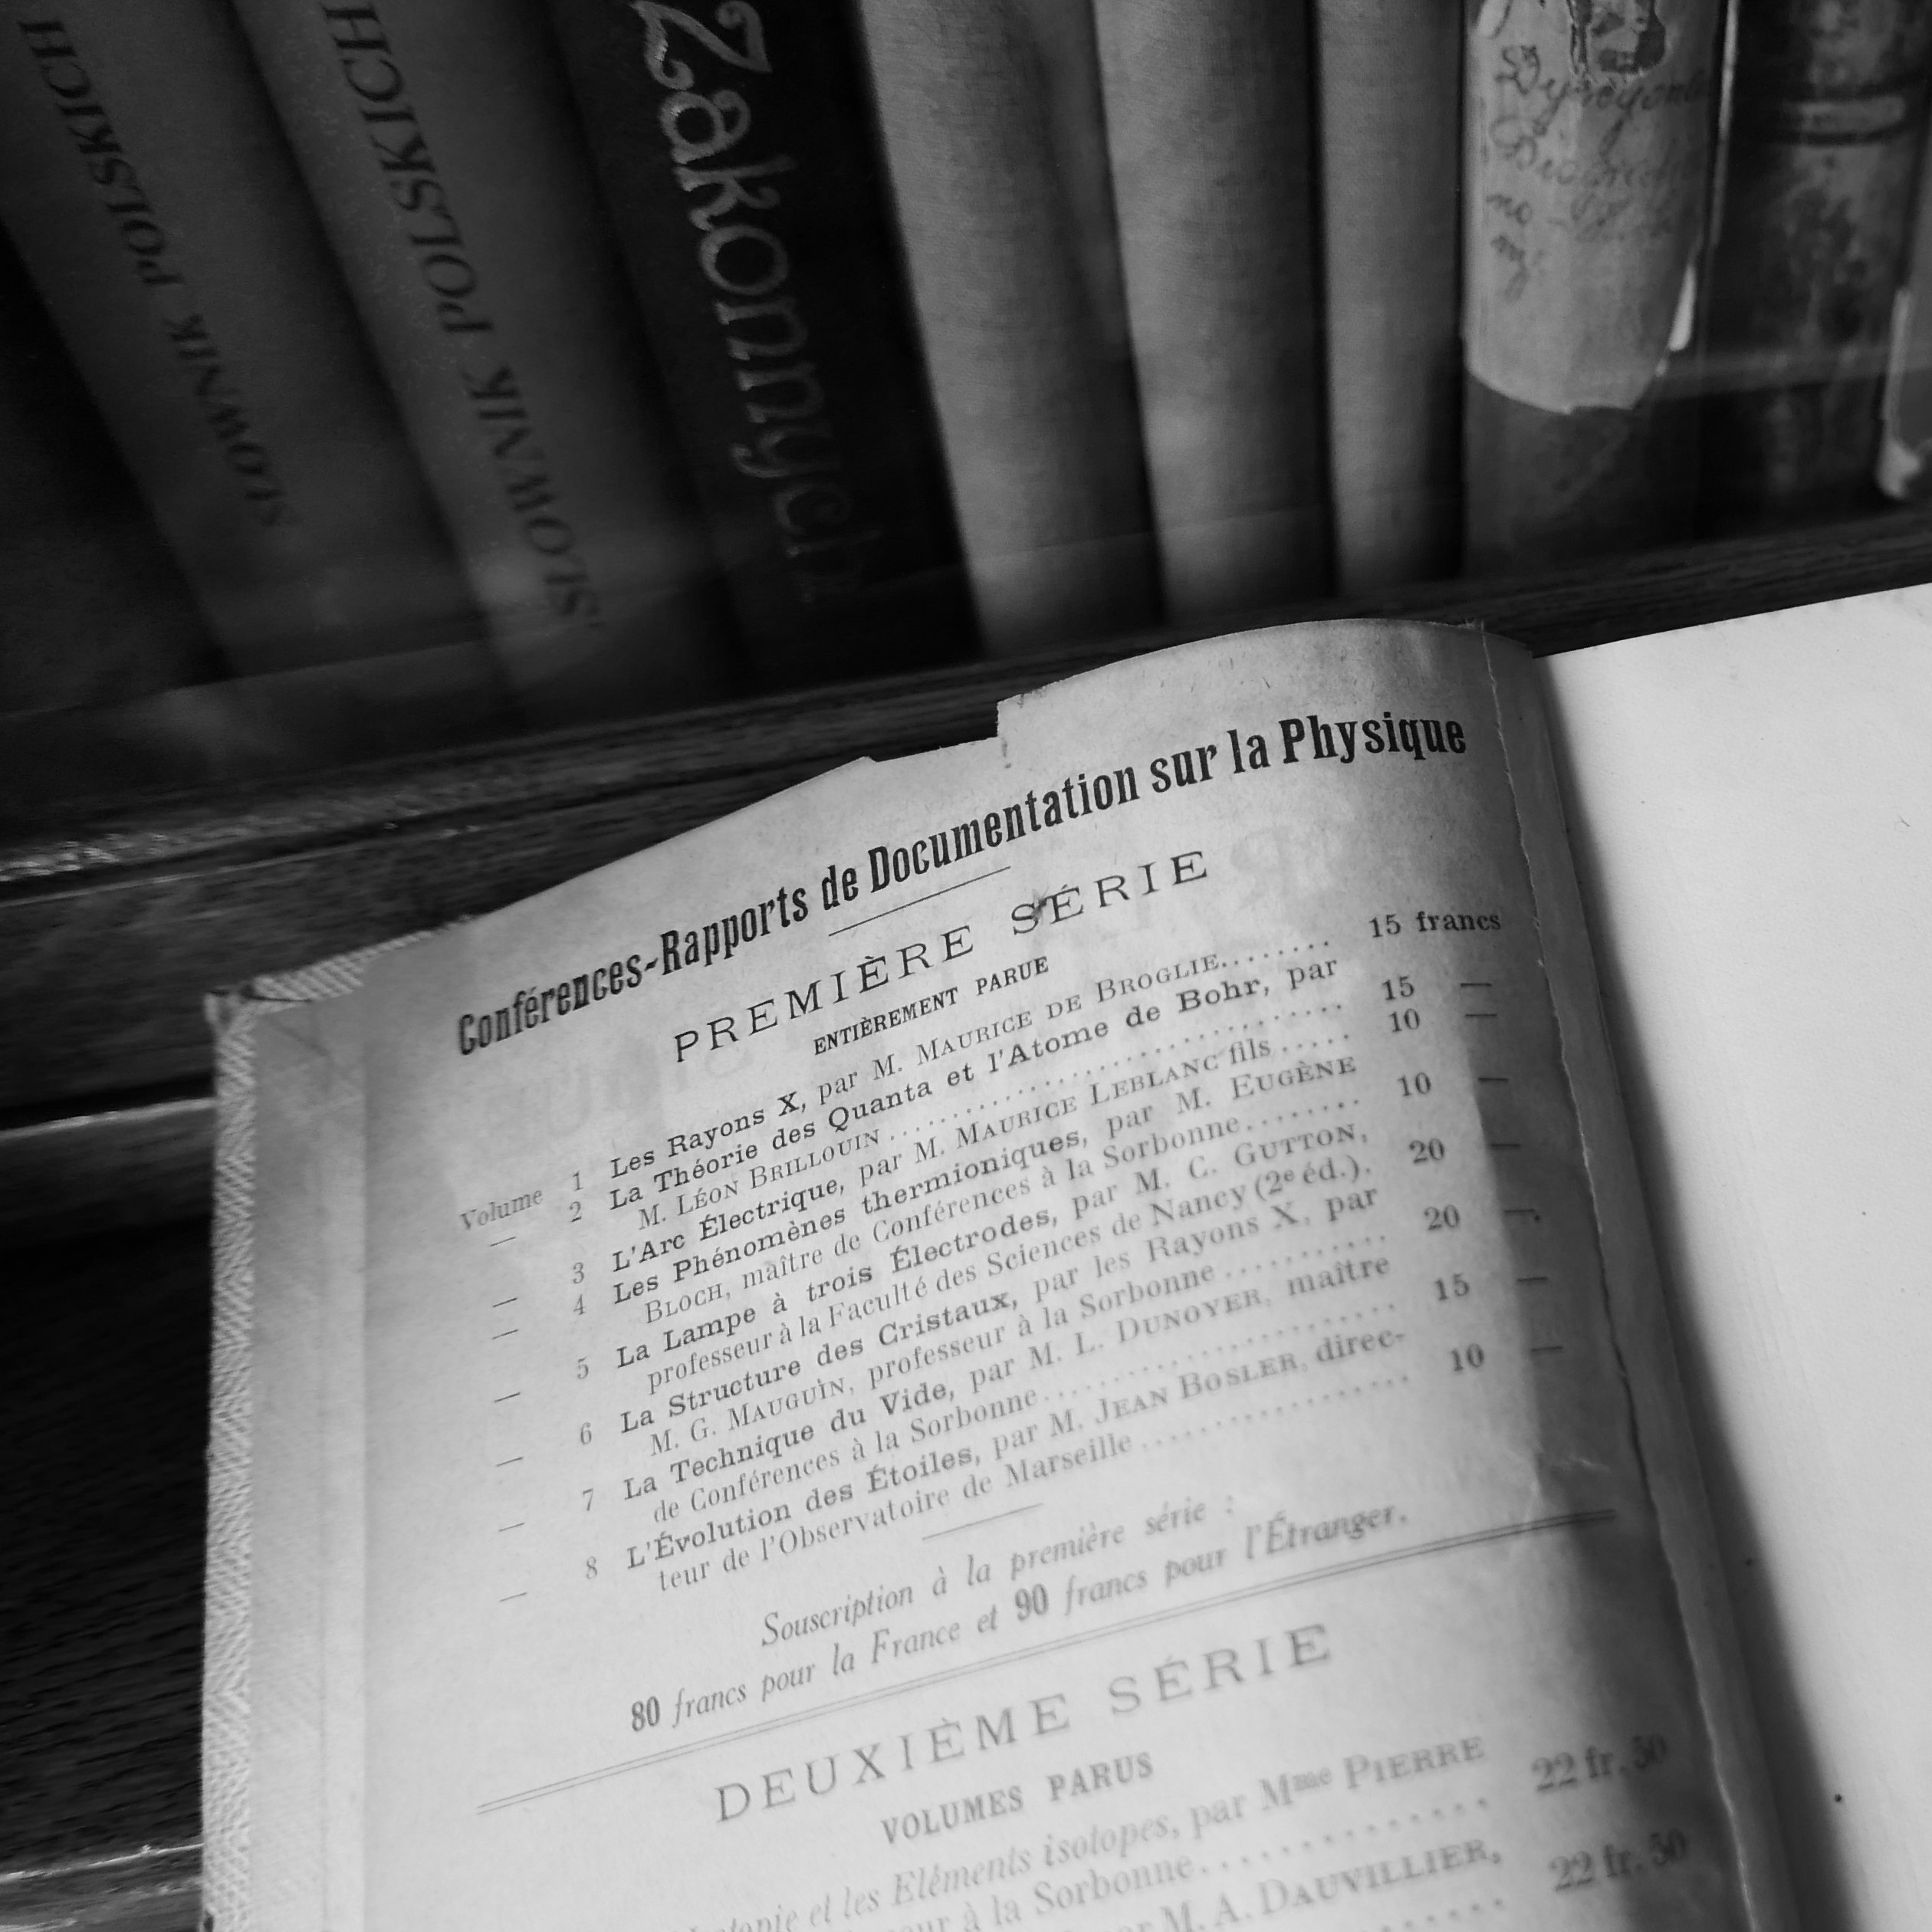 POLSKICH
SŁOWNIK
POLSKICH
SŁOWNIK
Zakonnych
no
Conférences-Rapports de Documentation sur la Physique
PREMIÈRE SÉRIE
ENTIÈREMENT PARUE
Volume 1 Les Rayons X, par M. MAURICE DE BROGLIE....... 15 francs
— 2 La Théorie des Quanta et l'Atome de Bohr, par
M. LÉON BRILLOUIN............................ 15 —
— 3 L'Arc Électrique, par M. MAURICE LEBLANC fils..... 10 —
— 4 Les Phénomènes thermioniques, par M. EUGÈNE
BLOCH, maître de Conférences à la Sorbonne........ 10 —
— 5 La Lampe à trois Électrodes, par M. C. GUTTON,
professeur à la Faculté des Sciences de Nancy (2e éd.). 20 —
— 6 La Structure des Cristaux, par les Rayons X, par
M. G. MAUGUIN, professeur à la Sorbonne.......... 20 —
— 7 La Technique du Vide, par M. L. DUNOYER, maître
de Conférences à la Sorbonne..................... 15 —
— 8 L'Évolution des Étoiles, par M. JEAN BOSLER, direc-
teur de l'Observatoire de Marseille................ 10 —
Souscription à la première série :
80 francs pour la France et 90 francs pour l'Étranger.
DEUXIÈME SÉRIE
VOLUMES PARUS
et les Eléments isotopes, par Mme PIERRE
à la Sorbonne................ 22 fr. 50
M. A. DAUVILLIER,
22 fr. 50